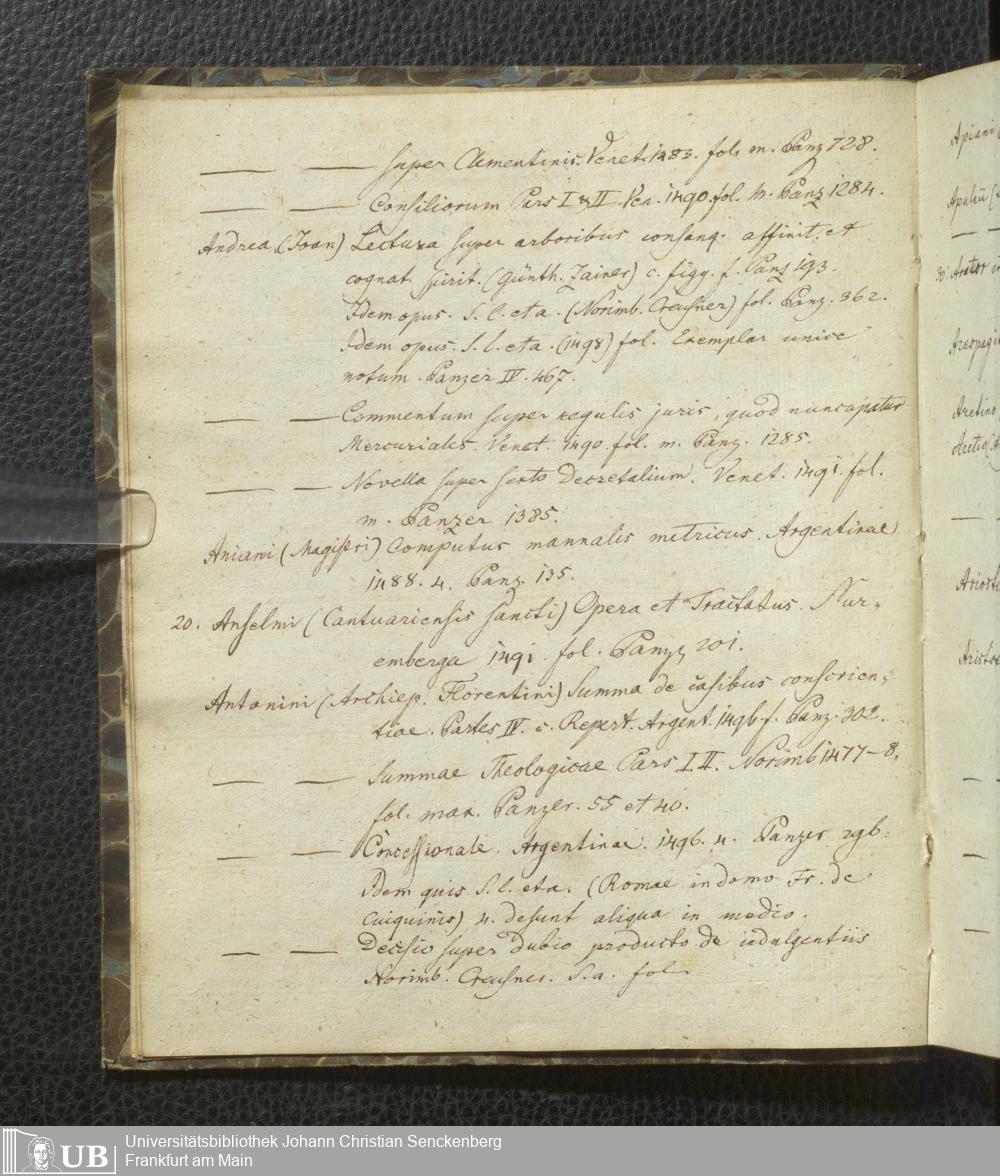 — — super Clementinis. Venet. 1483. fol. m. Panz 728.
— — Consiliorum Pars I & II Ven. 1490. fol. m. Panz 1284.
Andrea (Joan) Lectura super arboribus consang. affinit. et
cognat. spirit. (Günth. Zainer) c. figg. f. Panz 193.
Idem opus. S. l. et a. (Norimb. Creusner) fol. Panz. 362.
Idem opus. S. l. et a. (1498) fol. Exemplar unice
notum. Panzer IV. 467.
— — Commentum super regulis juris, quod nuncupatur
Mercuriales. Venet. 1490. fol. m. Panz. 1285.
— — Novella super sexto Decretalium. Venet. 1491. fol.
m. Panzer 1385.
Aniani (Magistri) Computus manualis metricus. Argentinae
1488. 4. Panz. 135.
20. Anselmi (Cantuariensis Sancti) Opera et Tractatus. Nur=
emberga 1491. fol. Panz. 201.
Antonini (Archiep. Florentini) Summa de casibus conscrien=
tiae. Partes IV. c. Repert. Argent. 1496. f. Panz. 302.
— — Summae Theologicae Pars I. II. Norimb 1477-8.
fol. max. Panzer. 55 et 40.
— — Concessionale. Argentinae. 1496. 4. Panzer 296.
Idem quis S. l. et a. (Romae in domo Fr. de
Cuiquinis) 4. desunt aliqua in medio.
— — Decisio super dubio producto de indulgentiis
Norimb. Creusner. S. a. fol.
Apiani
Apuleii
—
30. Arator
Areopagi
Aretino
Aretio
—
Ariosto
—
—
—
UB
Universitätsbibliothek Johann Christian Senckenberg
Frankfurt am Main